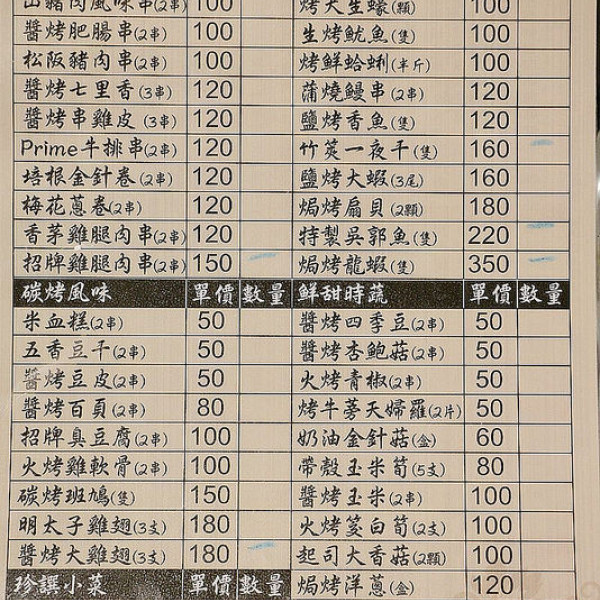 山豬肉風味串(2串) 100
醬烤肥腸串(2串) 100
松阪豬肉串(2串) 100
醬烤七里香(3串) 120
醬烤串雞皮(3串) 120
Prime牛排串(2串) 120
培根金針卷(2串) 120
梅花蔥卷(2串) 120
香茅雞腿肉串(2串) 120
招牌雞腿肉串(2串) 150
碳烤風味 單價 數量
米血糕(2串) 50
五香豆干(2串) 50
醬烤豆皮(2串) 50
醬烤百頁(2串) 80
招牌臭豆腐(2串) 100
火烤雞軟骨(2串) 100
碳烤班鳩(隻) 150
明太子雞翅(3支) 180
醬烤大雞翅(3支) 180
珍饌小菜 單價 數量
烤大生蠔(顆) 100
生烤魷魚(隻) 100
烤鮮蛤蜊(半斤) 100
蒲燒鰻串(2串) 120
鹽烤香魚(隻) 120
竹筴一夜干(隻) 160
鹽烤大蝦(3尾) 160
焗烤扇貝(2顆) 180
特製吳郭魚(隻) 220
焗烤龍蝦(隻) 350
鮮甜時蔬 單價 數量
醬烤四季豆(2串) 50
醬烤杏鮑菇(2串) 50
火烤青椒(2串) 50
烤牛蒡天婦羅(2片) 50
奶油金針菇(盒) 60
帶殼玉米筍(5支) 80
醬烤玉米(2串) 100
火烤茭白筍(2支) 100
起司大香菇(2顆) 100
焗烤洋蔥(盒) 120